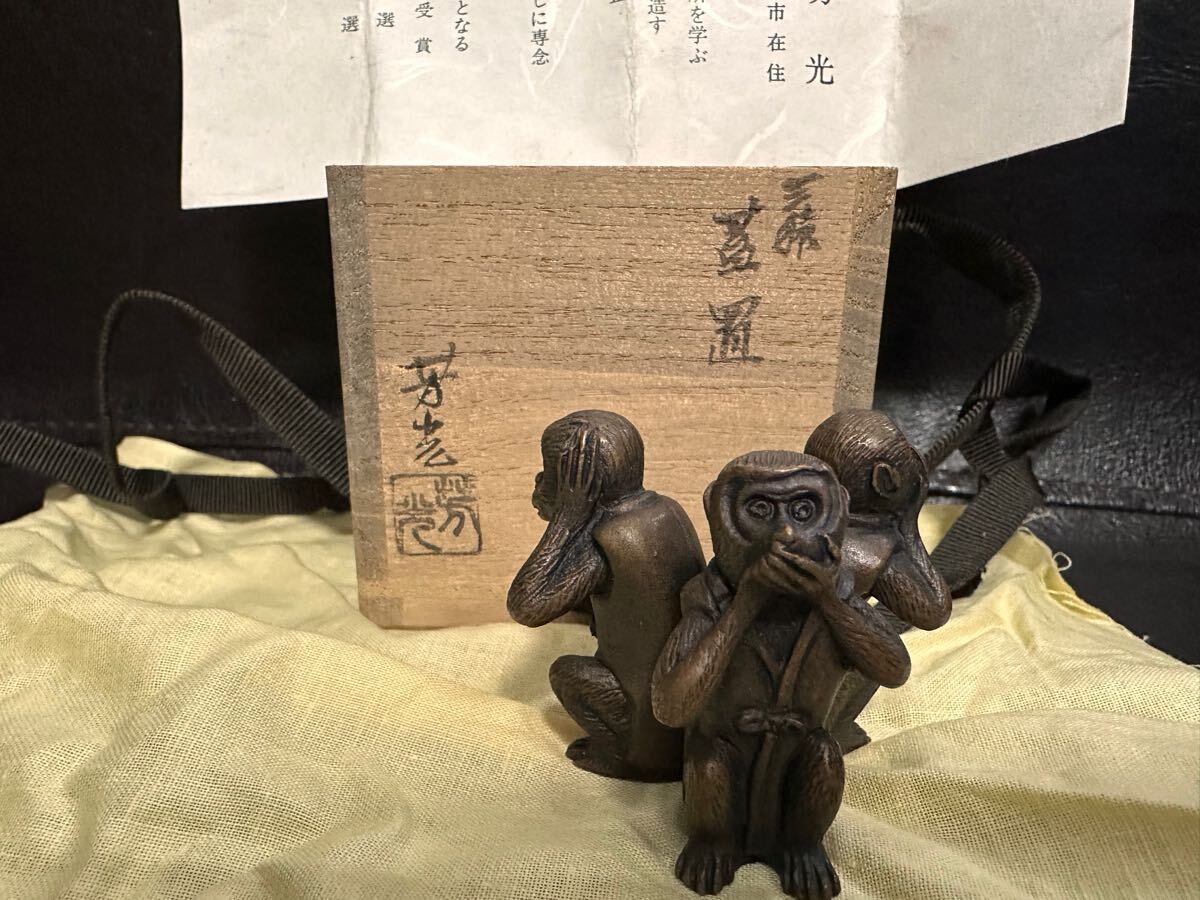 光
市在住
を学ぶ
造す
しに専念
となる
受賞
選
選
三猿
蓋置
芳光
芳光